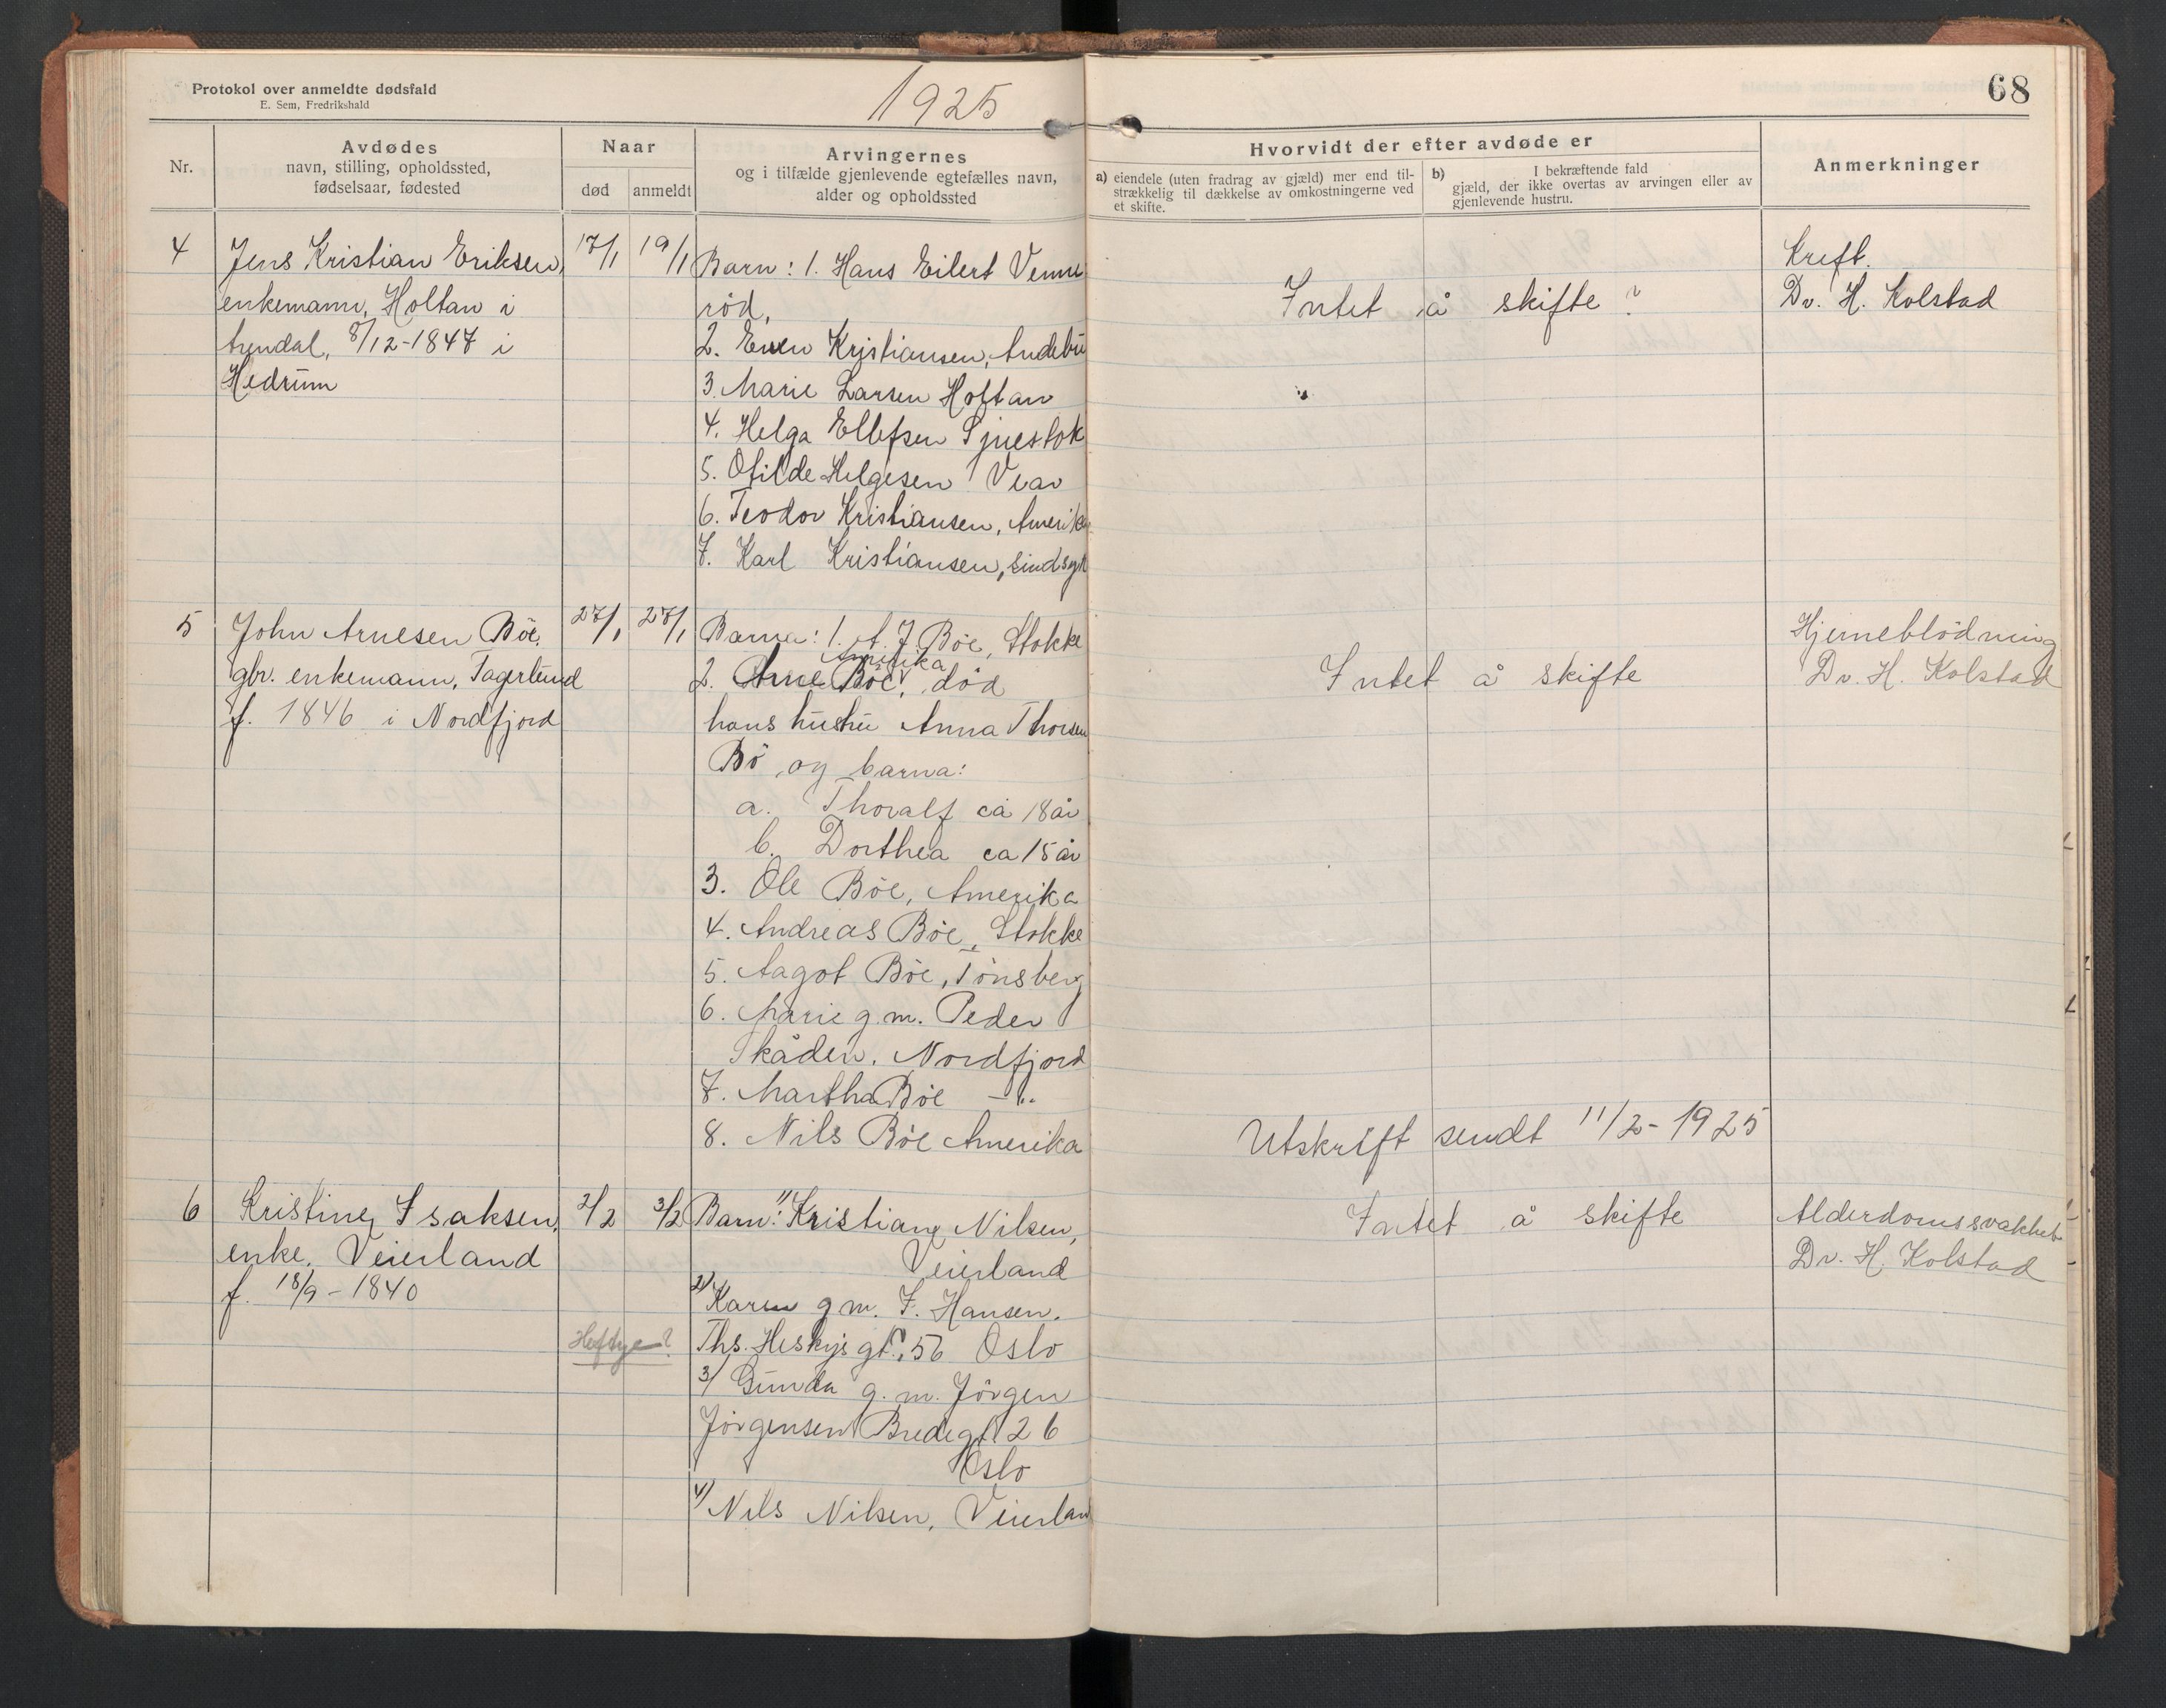 Protokol over anmeldte dødsfald
E. Sem, Fredrikshald
1925
68
Nr.
Avdødes
navn, stilling, opholdssted,
fødselsaar, fødested
Naar
død
anmeldt
Arvingernes
og i tilfælde gjenlevende egtefælles navn,
alder og opholdssted
Hvorvidt der efter avdøde er
a) eiendele (uten fradrag av gjæld) mer end til-
strækkelig til dækkelse av omkostningerne ved
et skifte.
b) I bekræftende fald
gjæld, der ikke overtas av arvingen eller av
gjenlevende hustru.
Anmerkninger
4
Jens Kristian Eriksen,
enkemann, Holtan i
Arendal, 8/12-1847 i
Hedrum
17/1
19/1
Barn: 1. Hans Eilert Venne
röd,
2. Even Kristiansen, Andebu
3. Marie Larsen Holtan
4. Helga Ellefsen
5. Otilde Helgesen Vear
6. Teodor Kristiansen, Amerika
7. Karl Kristiansen, sindsyk
Intet å skifte ?
Kreft.
Dr. H. Kolstad
5
John Arnesen Böe.
gbr. enkemann, Fagerlund
f. 1846 i Nordfjord
27/1
27/1
Barna: 1. A. J. Böe, Stokke
Amerika
2. Arne Böe, död
hans hustru Anna Thorsen
Bö og barna:
a. Thoralf ca 18 år
b. Dorthea ca 15 år
3. Ole Böe, Amerika
4. Andreas Böe, Stokke
5. Aagot Böe, Tönsberg
6. Marie g.m. Peder
Skåden. Nordfjord
7. Martha Böe -"-
8. Nils Böe Amerika
Intet å skifte
Hjerneblödning
Dr. H. Kolstad
Utskrift sendt 11/2-1925
6
Kristine Isaksen,
enke, Veierland
f. 18/9-1840
2/2
3/2
Barn: 1/ Kristiane Nilsen,
Veierland
2/ Karen g.m. F. Hansen.
Heftye?
Ths. Heskjes gt. 56 Oslo
3/ Gunda g.m. Jörgen
Jörgensen Bredegt 26
Oslo
4/ Nils Nilsen, Veierland
Intet å skifte
Alderdomssvakhet
Dr. H. Kolstad